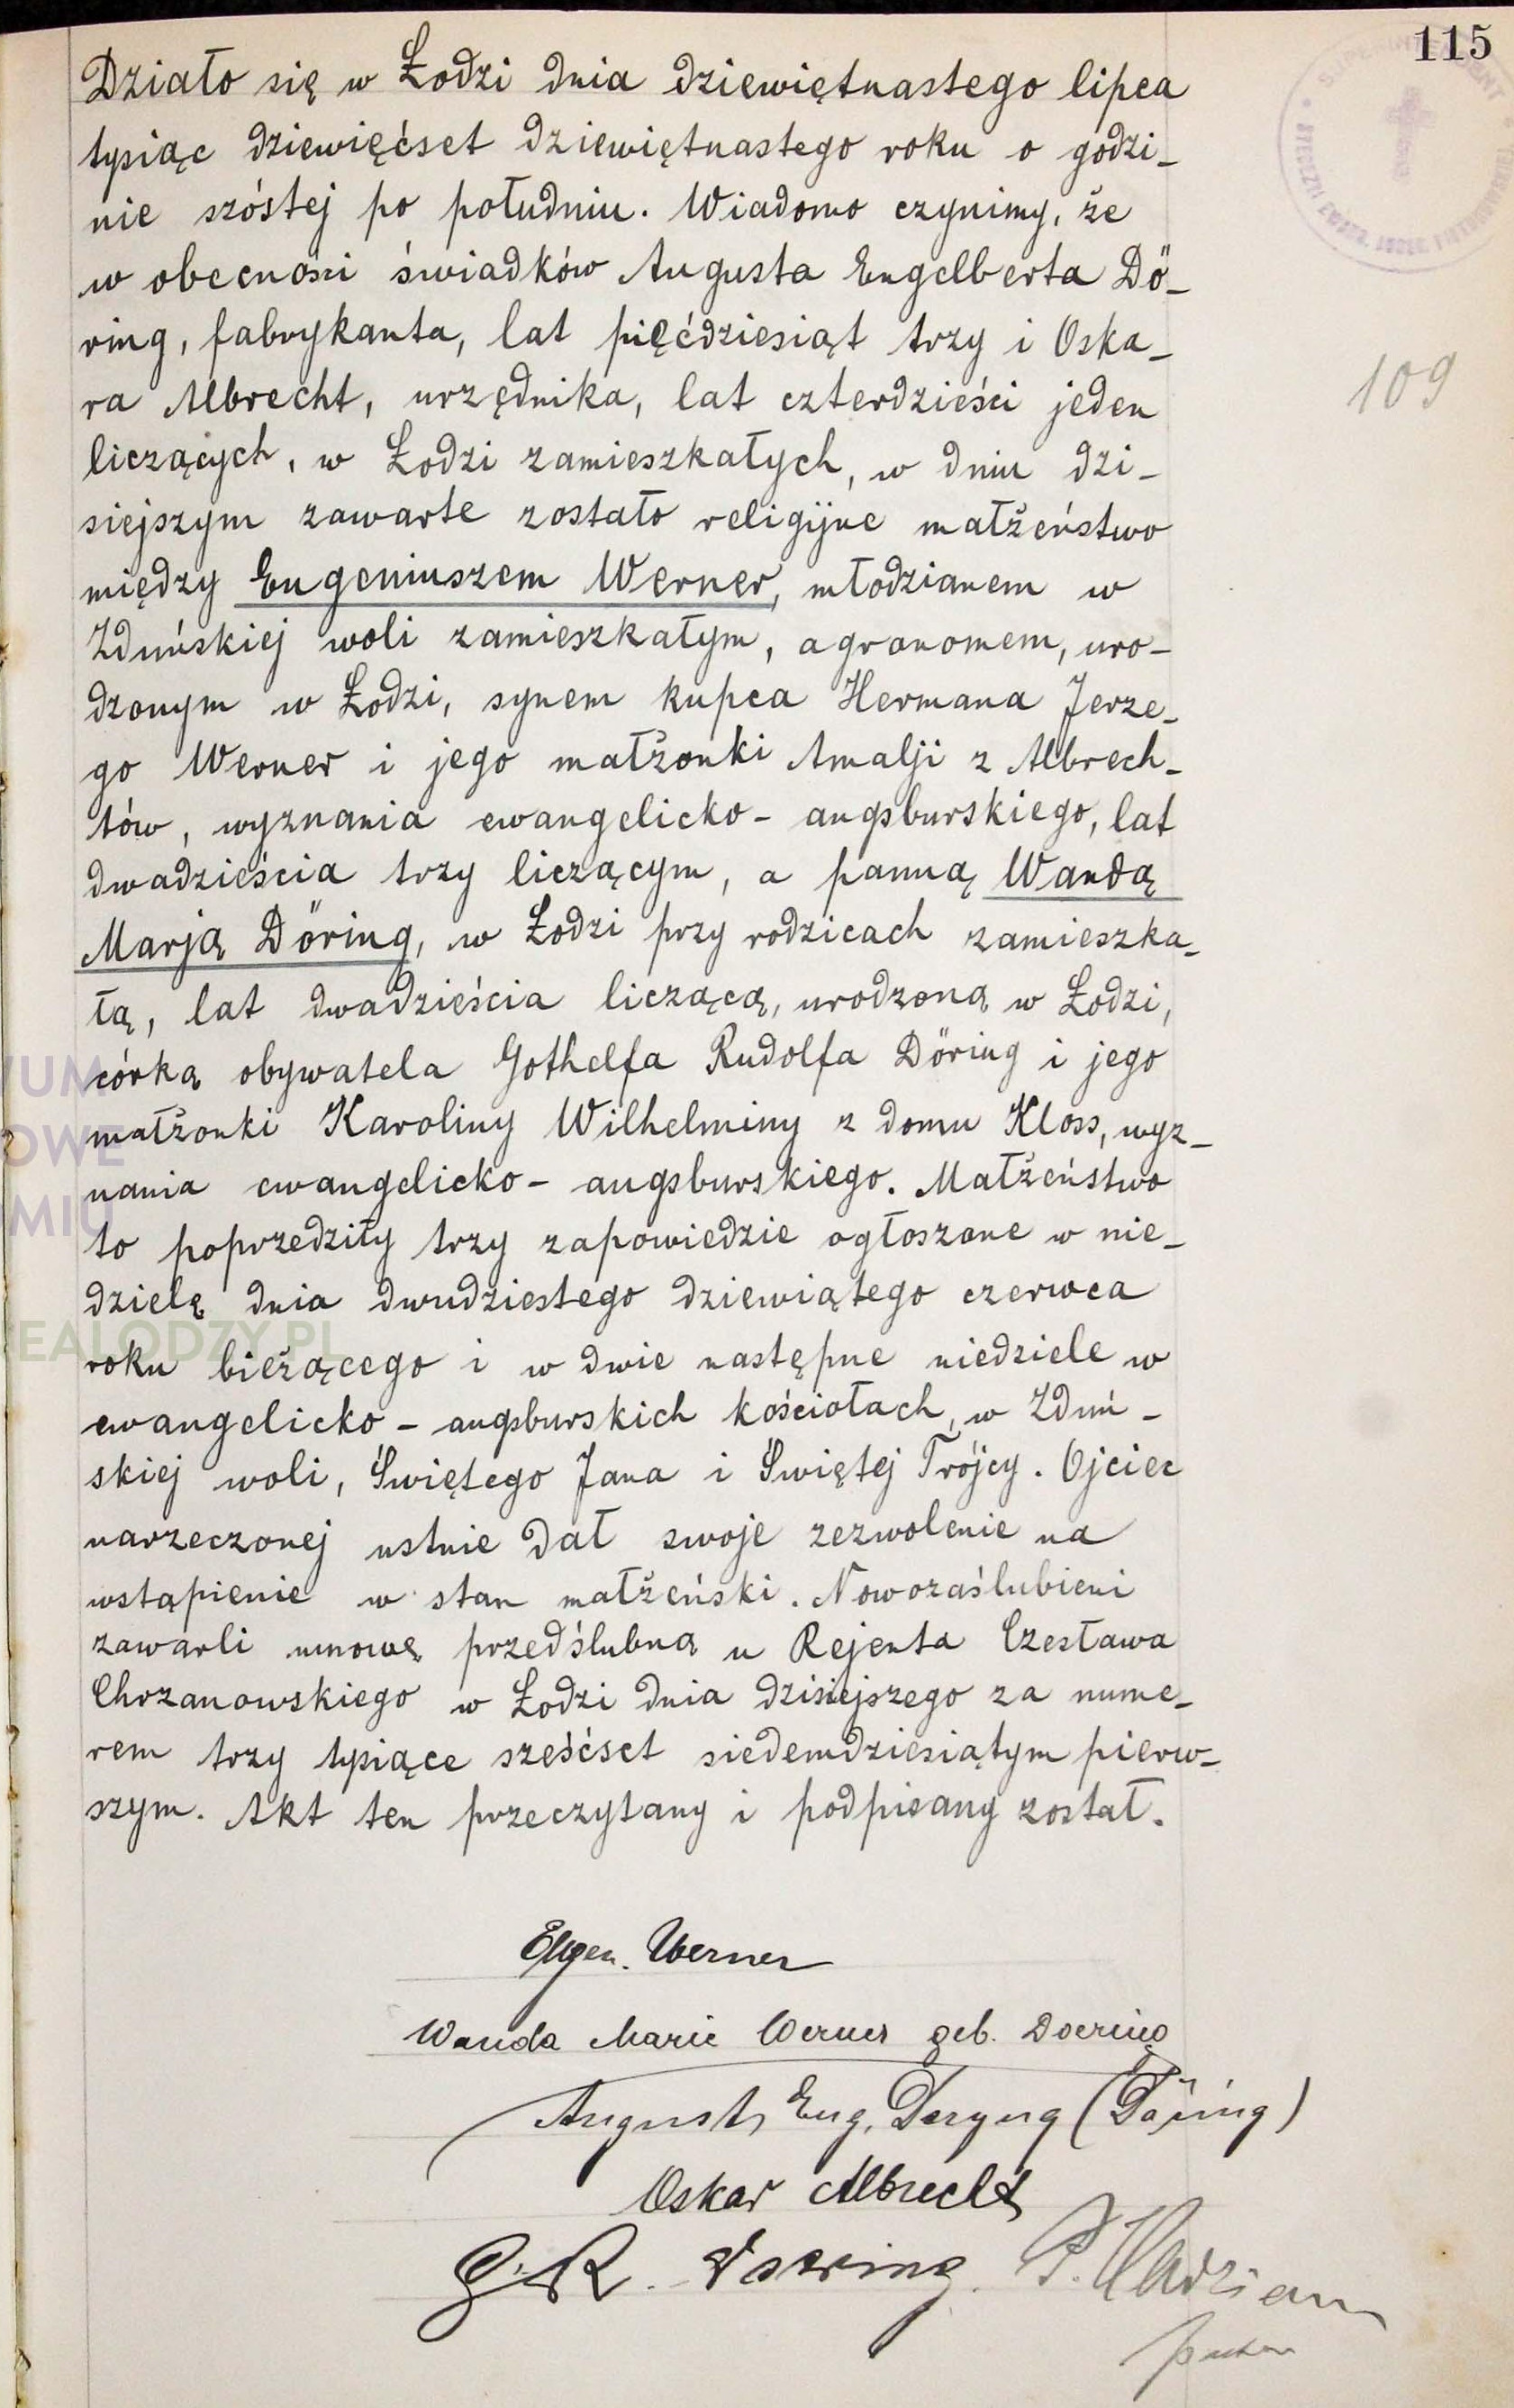 115
Działo się w Łodzi dnia dziewiętnastego lipca
tysiąc dziewięćset dziewiętnastego roku o godzi-
nie szóstej po południu. Wiadomo czynimy, że
w obecności świadków Augusta Engelberta Dö-
ring, fabrykanta, lat pięćdziesiąt trzy i Oska-
109
ra Albrecht, urzędnika, lat czterdzieści jeden
liczących, w Łodzi zamieszkałych, w dniu dzi-
siejszym zawarte zostało religijne małżeństwo
między Eugeniuszem Werner, młodzianem w
Zduńskiej woli zamieszkałym, agronomem, uro-
dzonym w Łodzi, synem kupca Hermana Jerze-
go Werner i jego małżonki Amalji z Albrech-
tów, wyznania ewangelicko - augsburskiego, lat
dwadzieścia trzy liczącym, a panną Wandą
Marją Döring, w Łodzi przy rodzicach zamieszka-
łą, lat dwadzieścia liczącą, urodzoną w Łodzi,
córką obywatela Gothelfa Rudolfa Döring i jego
małżonki Karoliny Wilhelminy z domu Kloss, wyz-
nania ewangelicko - augsburskiego. Małżeństwo
to poprzedziły trzy zapowiedzie ogłoszone w nie-
dzielę dnia dwudziestego dziewiątego czerwca
roku bieżącego i w dwie następne niedziele w
ewangelicko - augsburskich kościołach, w Zduń-
skiej woli, Świętego Jana i Świętej Trójcy. Ojciec
narzeczonej ustnie dał swoje zezwolenie na
wstąpienie w stan małżeński. Nowozaślubieni
zawarli umowę przedślubną u Rejenta Czesława
Chrzanowskiego w Łodzi dnia dzisiejszego za nume-
rem trzy tysiące sześćset siedemdziesiątym pierw-
szym. Akt ten przeczytany i podpisany został.
Eugen. Werner
Wanda Marie Werner geb. Doering
August Eug. Deryng (Döring)
Oskar Albrecht
G. R. Doering. P. Hadrian
pastor
UM
OWE
MIU
EALODZY.PL